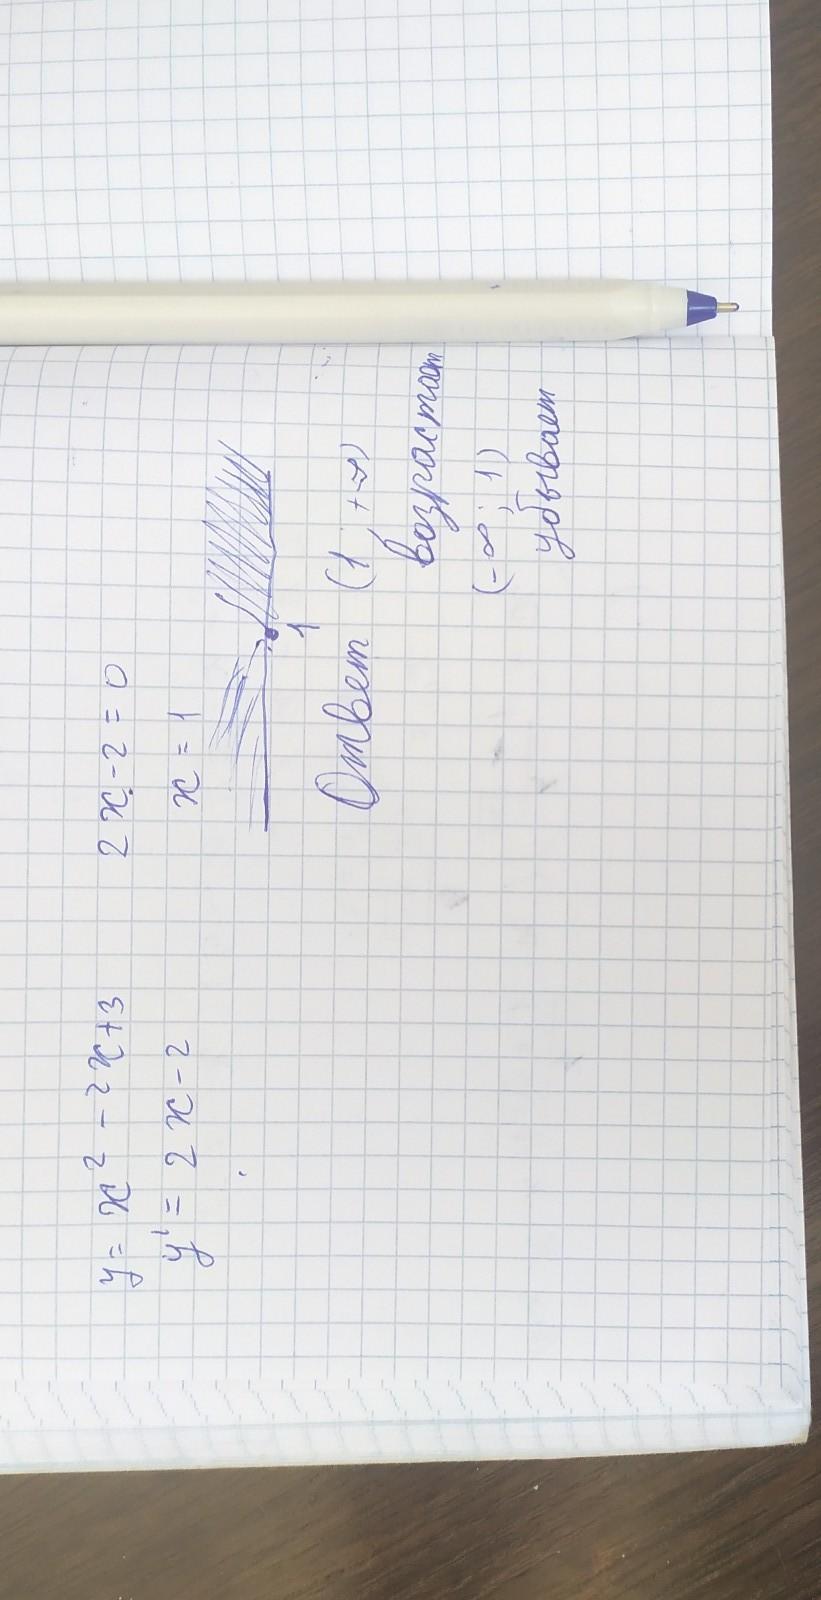 y = x² - 2x + 3
y' = 2x - 2
2x - 2 = 0
x = 1
1
Ответ (1; +∞)
возрастает
(-∞; 1)
убывает